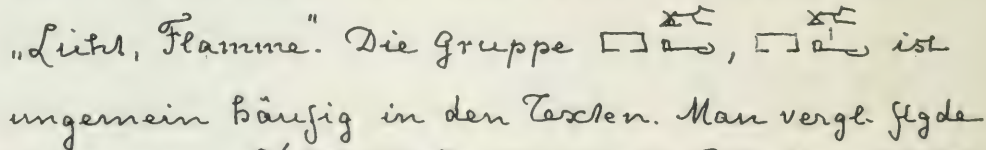 „Licht, Flamme“. Die Gruppe , ist
ungemein häufig in den Texten. Man vergl. flgde